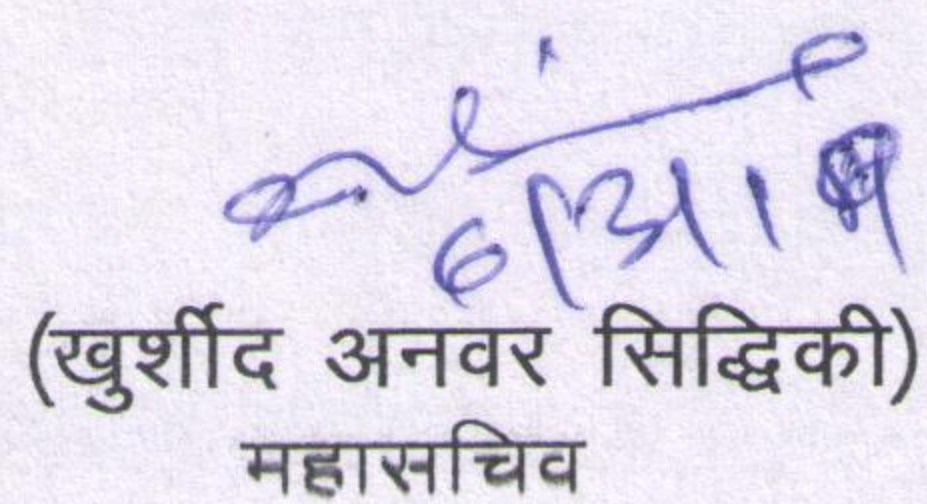 (खुर्शीद अनवर सिद्धिकी)
महासचिव